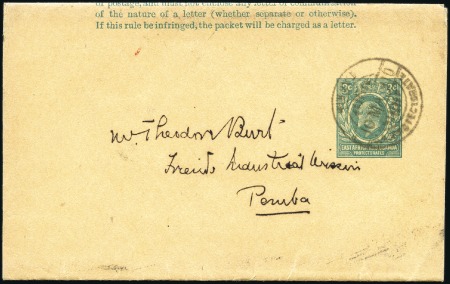 of postage, and must not enclose any letter or communication
of the nature of a letter (whether separate or otherwise).
If this rule be infringed, the packet will be charged as a letter.
3c 3c
EAST AFRICA AND UGANDA
PROTECTORATES
Mr Theodore Burtt
Friends Industrial Mission
Pemba